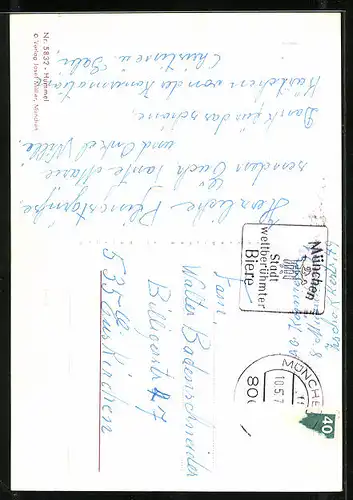 Herzliche Pfingstgrüße,
senden Euch Tante Marie
und Onkel Willi.
Dank für das schöne,
Kärtchen von der Kommunion
Christine u. Gabi,
Nr. 5837 - Hummel
© Verlag Josef Müller, München
München
Stadt
weltberühmter
Biere
MÜNCHE
10.5.7
800
40
Fam.
Walter Badenschneider
Billigerstr. 17
535 Euskirchen